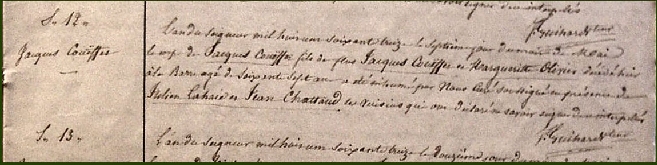 S. 12.
Jacques Couëffe
L'an du seigneur mil huit cent soixante treize le septième jour du mois de Mai
le corps de Jacques Couëffe fils de feus Jacques Couëffe et Marguerite Olivier décédé hier
à la Barre agé de soixante sept ans a été inhumé par Nous Curé soussigné en présence de
Julien Lahaie et Jean Chattaud, ses voisins qui ont déclaré ne savoir signer de ce interpellés
J. Guihard
S. 13.
L'an du seigneur mil huit cent soixante treize le douzième jour